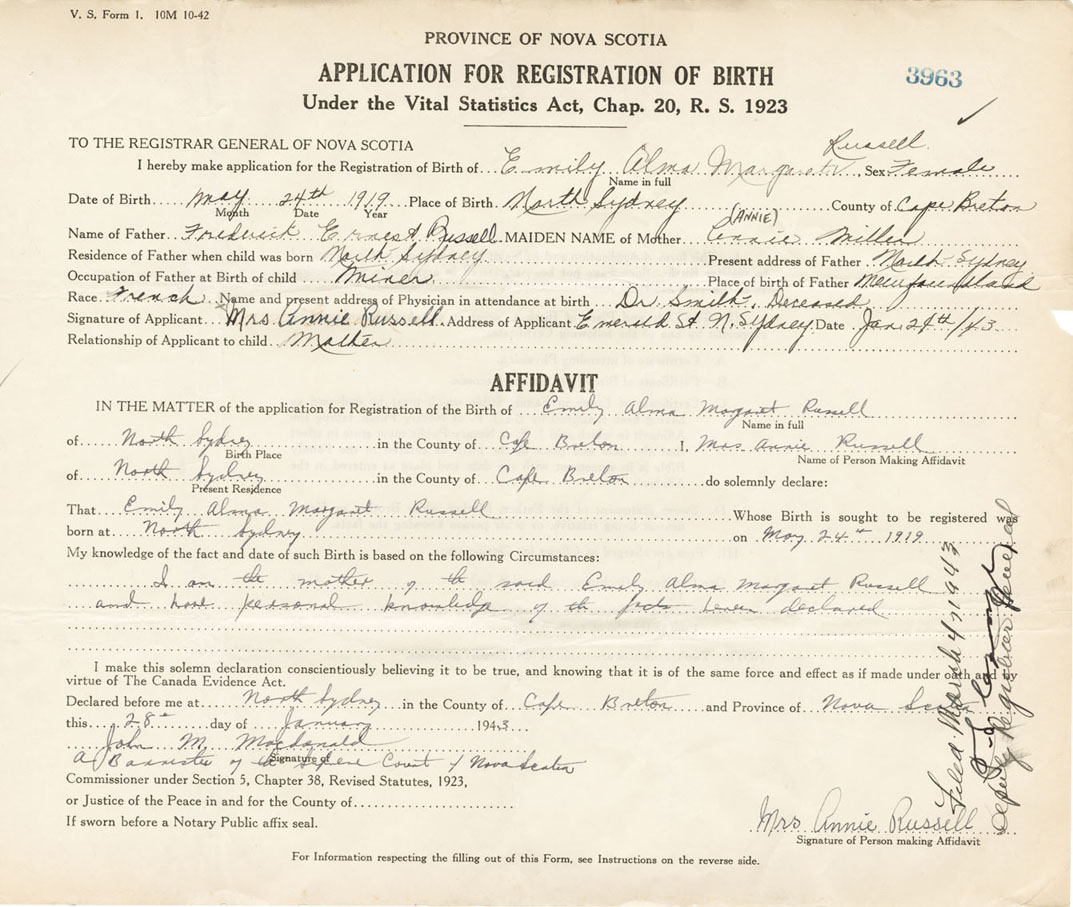 V. S. Form 1. 10M 10-42
PROVINCE OF NOVA SCOTIA
APPLICATION FOR REGISTRATION OF BIRTH
3963
Under the Vital Statistics Act, Chap. 20, R. S. 1923
TO THE REGISTRAR GENERAL OF NOVA SCOTIA
I hereby make application for the Registration of Birth of Emily Alma Margaret Russell, Sex Female
Name in full
Date of Birth May 24th 1919 Place of Birth North Sydney County of Cape Breton
Month Date Year
(ANNIE)
Name of Father Frederick Ernest Russell MAIDEN NAME of Mother Annie Miller
Residence of Father when child was born North Sydney Present address of Father North Sydney
Occupation of Father at Birth of child Miner Place of birth of Father Newfoundland
Race French Name and present address of Physician in attendance at birth Dr Smith, Deceased
Signature of Applicant Mrs Annie Russell Address of Applicant Emerald St. N. Sydney Date Jan 24th/43
Relationship of Applicant to child Mother
AFFIDAVIT
IN THE MATTER of the application for Registration of the Birth of Emily Alma Margaret Russell
Name in full
of North Sydney in the County of Cape Breton I, Mrs Annie Russell
Birth Place Name of Person Making Affidavit
of North Sydney in the County of Cape Breton do solemnly declare:
Present Residence
That Emily Alma Margaret Russell Whose Birth is sought to be registered was
born at North Sydney on May 24th 1919
My knowledge of the fact and date of such Birth is based on the following Circumstances:
I am the mother of the said Emily Alma Margaret Russell
and have personal knowledge of the facts herein declared
I make this solemn declaration conscientiously believing it to be true, and knowing that it is of the same force and effect as if made under oath and by
virtue of The Canada Evidence Act.
Declared before me at North Sydney in the County of Cape Breton and Province of Nova Scotia
this 28th day of January 1943
John M. Macdonald
Signature of
A Barrister of the Supreme Court of Nova Scotia
Commissioner under Section 5, Chapter 38, Revised Statutes, 1923,
or Justice of the Peace in and for the County of
If sworn before a Notary Public affix seal.
Mrs Annie Russell
Signature of Person making Affidavit
For Information respecting the filling out of this Form, see Instructions on the reverse side.
Filed March 4, 1943
Deputy Registrar General